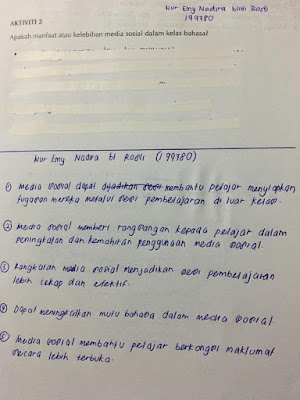 Nur Emy Nadira binti Rosli
199780
AKTIVITI 2
Apakah manfaat atau kelebihan media sosial dalam kelas bahasa?
Nur Emy Nadira bt Rosli (199780)
① Media sosial dapat membantu pelajar menyiapkan
tugasan mereka melalui sesi pembelajaran di luar kelas.
② Media sosial memberi rangsangan kepada pelajar dalam
peningkatan dan kemahiran penggunaan media sosial.
③ Rangkaian media sosial menjadikan sesi pembelajaran
lebih cekap dan efektif.
④ Dapat meningkatkan mutu bahasa dalam media sosial.
⑤ Media sosial membantu pelajar berkongsi maklumat
secara lebih terbuka.